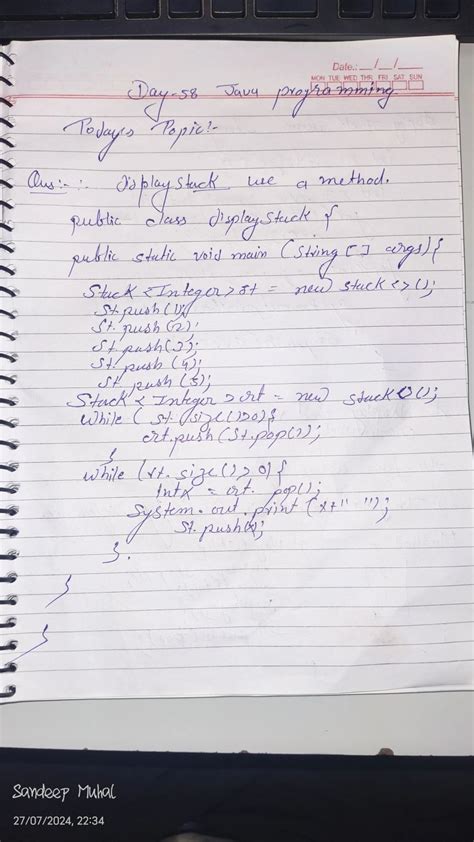 Date.: __/__/__
MON TUE WED THR FRI SAT SUN
Day-58 Java programming
Todays Topic:-
Ques:-: displaystack use a method.
public class displaystack {
public static void main (String [] args){
Stack <Integer> st = new stack<>();
St.push(1);
St.push(2);
St.push(3);
St.push(4);
St push (5);
Stack <Integer> rt = new stack<>();
while ( St. size()>0){
rt.push(St.pop());
}
while (rt. size()>0){
Int x = rt. pop();
System.out.print (x+" ");
St.push(x);
}.
}
}
Sandeep Muhal
27/07/2024, 22:34